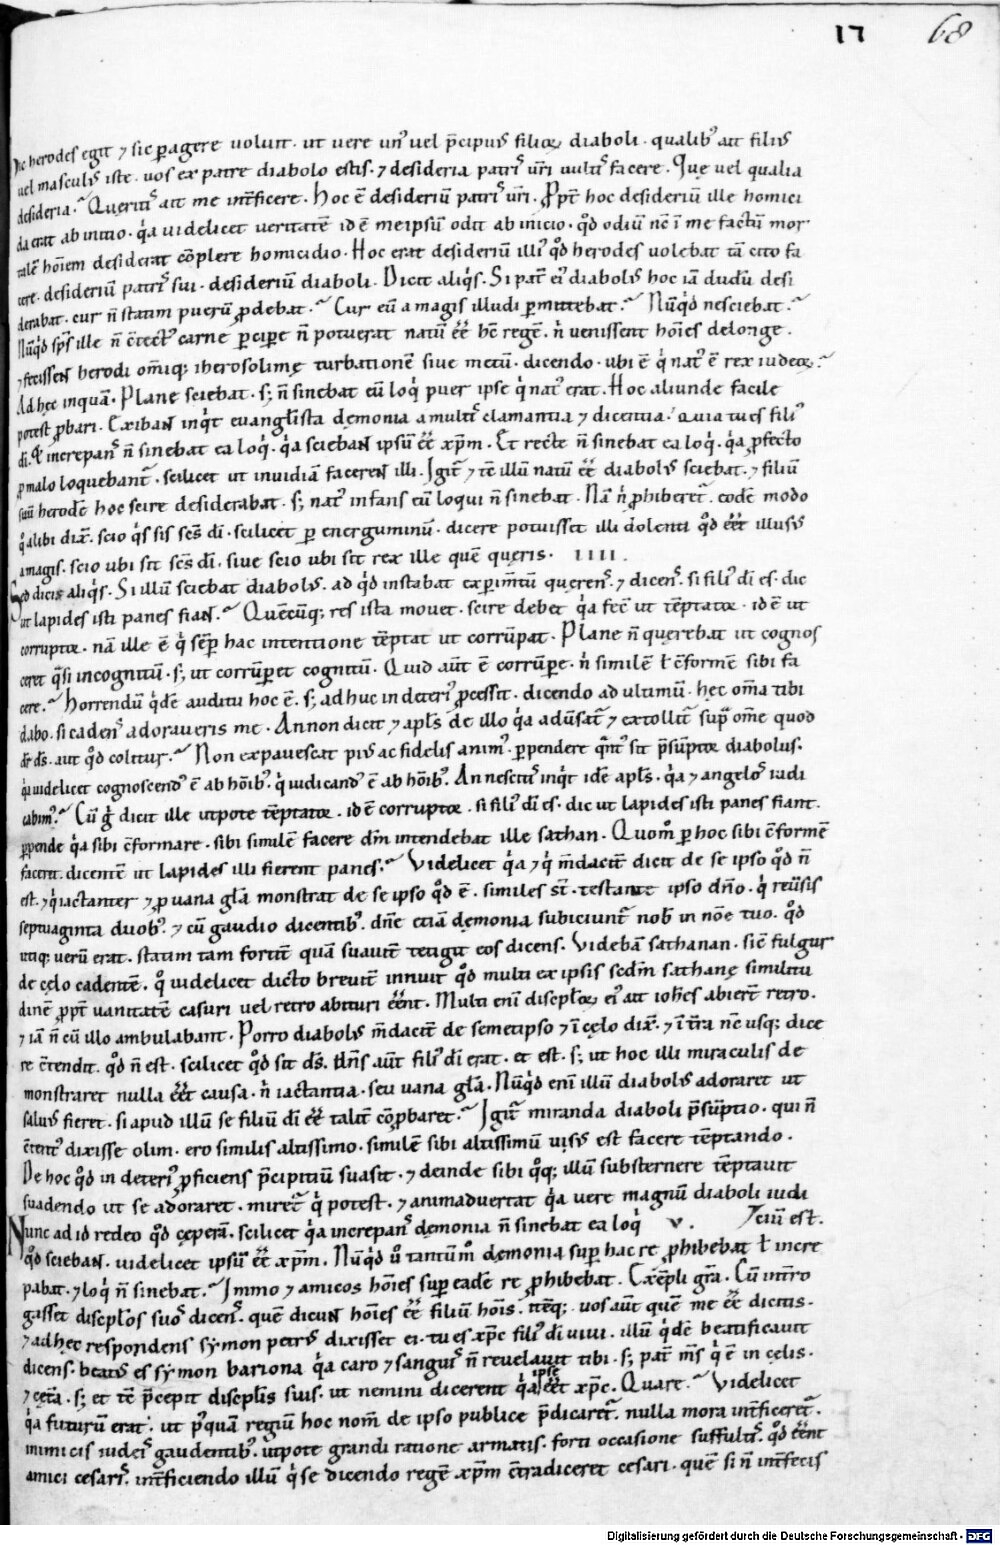 17 68
hic herodes egit ⁊ sic ꝑagere voluit. ut vere un' vel p̄cipuus filioꝝ diaboli. qualib' ait filius
vel masculus iste. vos ex patre diabolo estis. ⁊ desideria patris uri vultis facere. Que vel qualia
desideria? Queritis ait me int̄ficere. Hoc ē desideriū patris uri. Ꝓpt̄ hoc desideriū ille homici
da erat ab initio. q̇a videlicet veritatē id ē me ipsū odit ab inicio. qd̄ odiū nc̄ ī me factū mor
talē hoīem desiderat cōplere homicidio. Hoc erat desideriū illi' qd̄ herodes volebat tā cito fa
cere. desideriū patris sui. desideriū diaboli. Dicit aliq̇s. Si pat̄ ei' diabolus hoc iā dudū desi
derabat. cur n̄ statim puerū ꝓdebat? Cur eū a magis illudi ꝑmittebat? Nūq̇d nesciebat?
Nūq̇d sp̄s ille n̄ c̄tect' carne ꝑcipe n̄ potuerat natū eē hc̄ regē. n̄ venissent hoīes de longe.
⁊ fecissent herodi om̄iq; iherosolimę turbationē sive metū. dicendo. ubi ē q̇ nat' ē rex iudeoꝝ?
Ad hęc inquā. Plane sciebat. s; n̄ sinebat eū loq̇ puer ipse q̇ nat' erat. Hoc aliunde facile
potest ꝓbari. Exibant inq̇t evanglista dęmonia a multis clamantia ⁊ dicentia. Quia tu es fili'
di. Et increpans n̄ sinebat ea loq̇. q̇a sciebant ipsū eē xp̄m. Et recte n̄ sinebat ea loq̇. q̇a ꝓfecto
ꝓ malo loquebant̄. scilicet ut invidiā facerent illi. Igit̄ ⁊ tē illū natū eē diabolus sciebat. ⁊ filiū
suū herodē hoc scire desiderabat. s; nat' infans eū loqui n̄ sinebat. Nā n̄ ꝓhiberet̄. eodē modo
q̊ alibi dix̄. scio q̇s sis scs̄ di. scilicet ꝑ energuminū. dicere potuisset illi dolenti qd̄ eēt illusus
a magis. scio ubi sit scs̄ di. sive scio ubi sit rex ille quē queris. IIII.
Sed dicis aliq̇s. Si illū sciebat diabolus. ad q̇d instabat exꝑim̄tū querens. ⁊ dicens. si fili' di es. dic
ut lapides isti panes fiant? Quēcūq; res ista movet. scire debet q̇a fec̄ ut tēptator. id ē ut
corruptor. nā ille ē q̇ sēp hac intentione tēptat ut corrūpat. Plane n̄ quęrebat ut cognos
ceret q̇si incognitū. s; ut corrūperet cognitū. Quid aut̄ ē corrūpe. n̄ similē ł c̄formē sibi fa
cere? Horrendū q̇dē auditu hoc ē. s; adhuc in deteri' ꝓcessit. dicendo ad ultimū. hęc om̄a tibi
dabo. si cadens adoraveris me. An non dicit ⁊ apls de illo q̇a adv̄sat̄ ⁊ extollit̄ supra om̄e quod
dr̄ ds̄. aut qd̄ colitur? Non expavescat pius ac fidelis anim'. ꝑpendere q̇nt' sit p̄sūptor diabolus.
q̇ videlicet cognoscend' ē ab hōib'. q̇ iudicand' ē ab hōib'. An nescitis inq̇t idē apls. q̇a ⁊ angelos iudi
cabim'? Cū g̊ dicit ille utpote tēptator. id ē corruptor. si fili' di es. dic ut lapides isti panes fiant.
ꝑpende q̇a sibi c̄formare. sibi similē facere dm̄ intendebat ille sathan. Quom̊ ꝑ hoc sibi c̄formē
facerit. dicentē ut lapides illi fierent panes? Videlicet q̇a ⁊ q̇ m̄dacit̄ dicit de se ipso qd̄ n̄
est. ⁊ q̇ iactanter ⁊ ꝓ vana gla monstrat de se ipso qd̄ ē. similes st̄. testante ipso dn̄o. q̇ rev̄sis
septuaginta duob'. ⁊ cū gaudio dicentib'. dn̄e etiā dęmonia subiciunt̄ nob̄ in nōe tuo. qd̄
utiq; verū erat. statim tam fortit̄ quā suavit̄ tetigit eos dicens. Videbā sathanan. sic̄ fulgur
de cęlo cadentē. q̊ videlicet dicto brevit̄ innuit qd̄ multi ex ipsis scdm̄ sathanę similitu
dinē ꝓpt̄ vanitatē casuri vel retro abituri eēnt. Multi eni discploꝝ ei' ait iohes abiert̄ retro.
⁊ iā n̄ cū illo ambulabant. Porro diabolus m̄dacit̄ de semetipso ⁊ ī cęlo dix̄. ⁊ ī t̄ra nc̄ usq; dice
re c̄tendit. qd̄ n̄ est. scilicet qd̄ sit ds̄. dns̄ aut̄ fili' di erat. et est. s; ut hoc illi miraculis de
monstraret nulla eēt causa. n̄ iactantia. seu vana gla. Nūq̇d eni illū diabolus adoraret ut
salvus fieret. si apud illū se filiū di eē talit̄ cōꝓbaret? Igit̄ miranda diaboli p̄sūptio. qui n̄
c̄tent' dixisse olim. ero similis altissimo. similē sibi altissimū visus est facere tēptando.
De hoc qd̄ in deteri' ꝓficiens p̄cipitiū suasit. ⁊ deinde sibi q̊q; illū substernere tēptavit
suadendo ut se adoraret. miret̄ q̇ potest. ⁊ animadvertat q̇a vere magnū diaboli iudi
Nunc ad id redeo qd̄ cęperā. scilicet q̇a increpans dęmonia n̄ sinebat ea loq̇ V. ciū est.
qd̄ sciebant. videlicet ipsū eē xp̄m. Nūq̇d v̊ tantūm̊ dęmonia sup hac re ꝓhibebat ł incre
pabat. ⁊ loq̇ n̄ sinebat? Immo ⁊ amicos hoīes sup eadē re ꝓhibebat. Exēpli gra. Cū int̄ro
gasset discplos suos dicens. quē dicunt hoīes eē filiū hoīs. itēq; vos aut̄ quē me eē dictis.
⁊ ad hęc respondens symon petrus dixisset ei. tu es xp̄c fili' di vivi. illū q̇dē beatificavit
dicens. beatus es symon bariona q̇a caro ⁊ sanguis n̄ revelavit tibi. s; pat̄ ms̄ q̇ ē in cęlis.
⁊ cęt̄a. s; et tē p̄cepit discplis suis. ut nemini dicerent q̇a ipse eēt xp̄c. Quare? Videlicet
q̇a futurū erat. ut p'quā regiū hoc nom̄ de ipso publice p̄dicaret̄. nulla mora int̄ficeret̄.
inimicis iudeis gaudentib'. utpote grandi ratione armatis. forti occasione suffultis. qd̄ eēnt
amici cesaris. int̄ficiendo illū q̇ se dicendo regē xp̄m c̄tradiceret cesari. quē si n̄ int̄fecis
Digitalisierung gefördert durch die Deutsche Forschungsgemeinschaft - DFG